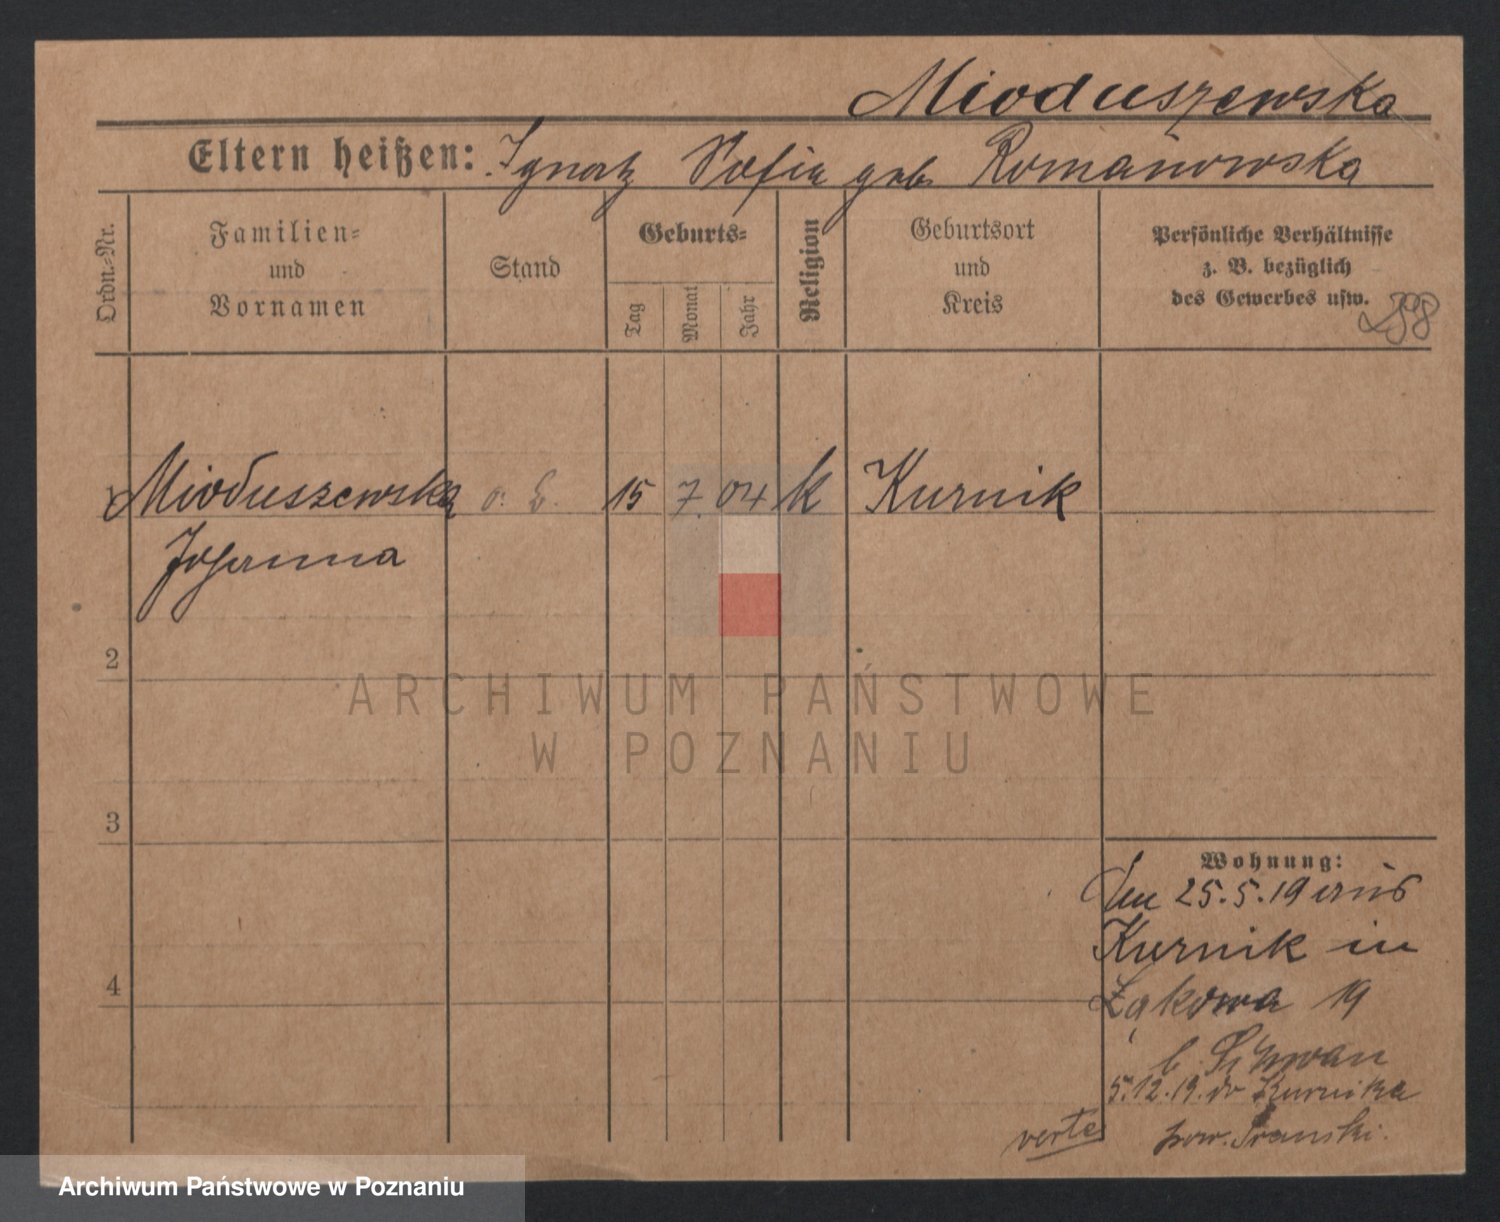 Mioduszewska
Eltern heißen: Ignatz Sofia geb. Romanowska
Ordn.-Nr.
Familien-
und
Vornamen
Stand
Geburts-
Tag
Monat
Jahr
Religion
Geburtsort
und
Kreis
Persönliche Verhältnisse
z. B. bezüglich
des Gewerbes usw.
1 Mioduszewska 15 7. 04 k Kurnik
Johanna
2
ARCHIWUM PAŃSTWOWE
W POZNANIU
3
Wohnung:
Den 25.5.19 aus
Kurnik in
4
Łąkowa 19
b.
5.12.19. do Kurnika
verte
pow.
Archiwum Państwowe w Poznaniu